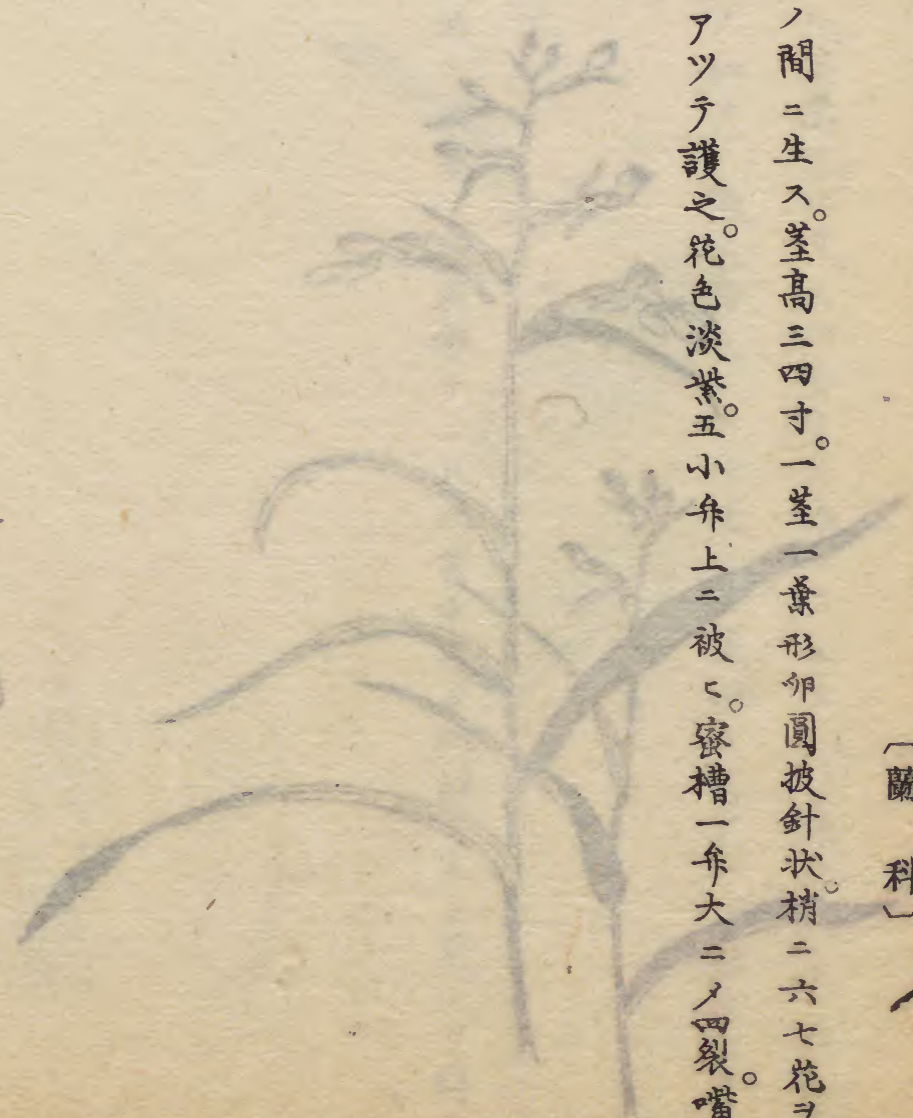 〔蘭科〕
ノ間ニ生ス。莖高三四寸。一莖一葉形卵圓披針状。梢ニ六七花ヲ
アツテ護之。花色淡紫。五小弁上ニ被ヒ。蜜槽一弁大ニ〆四裂。嘴